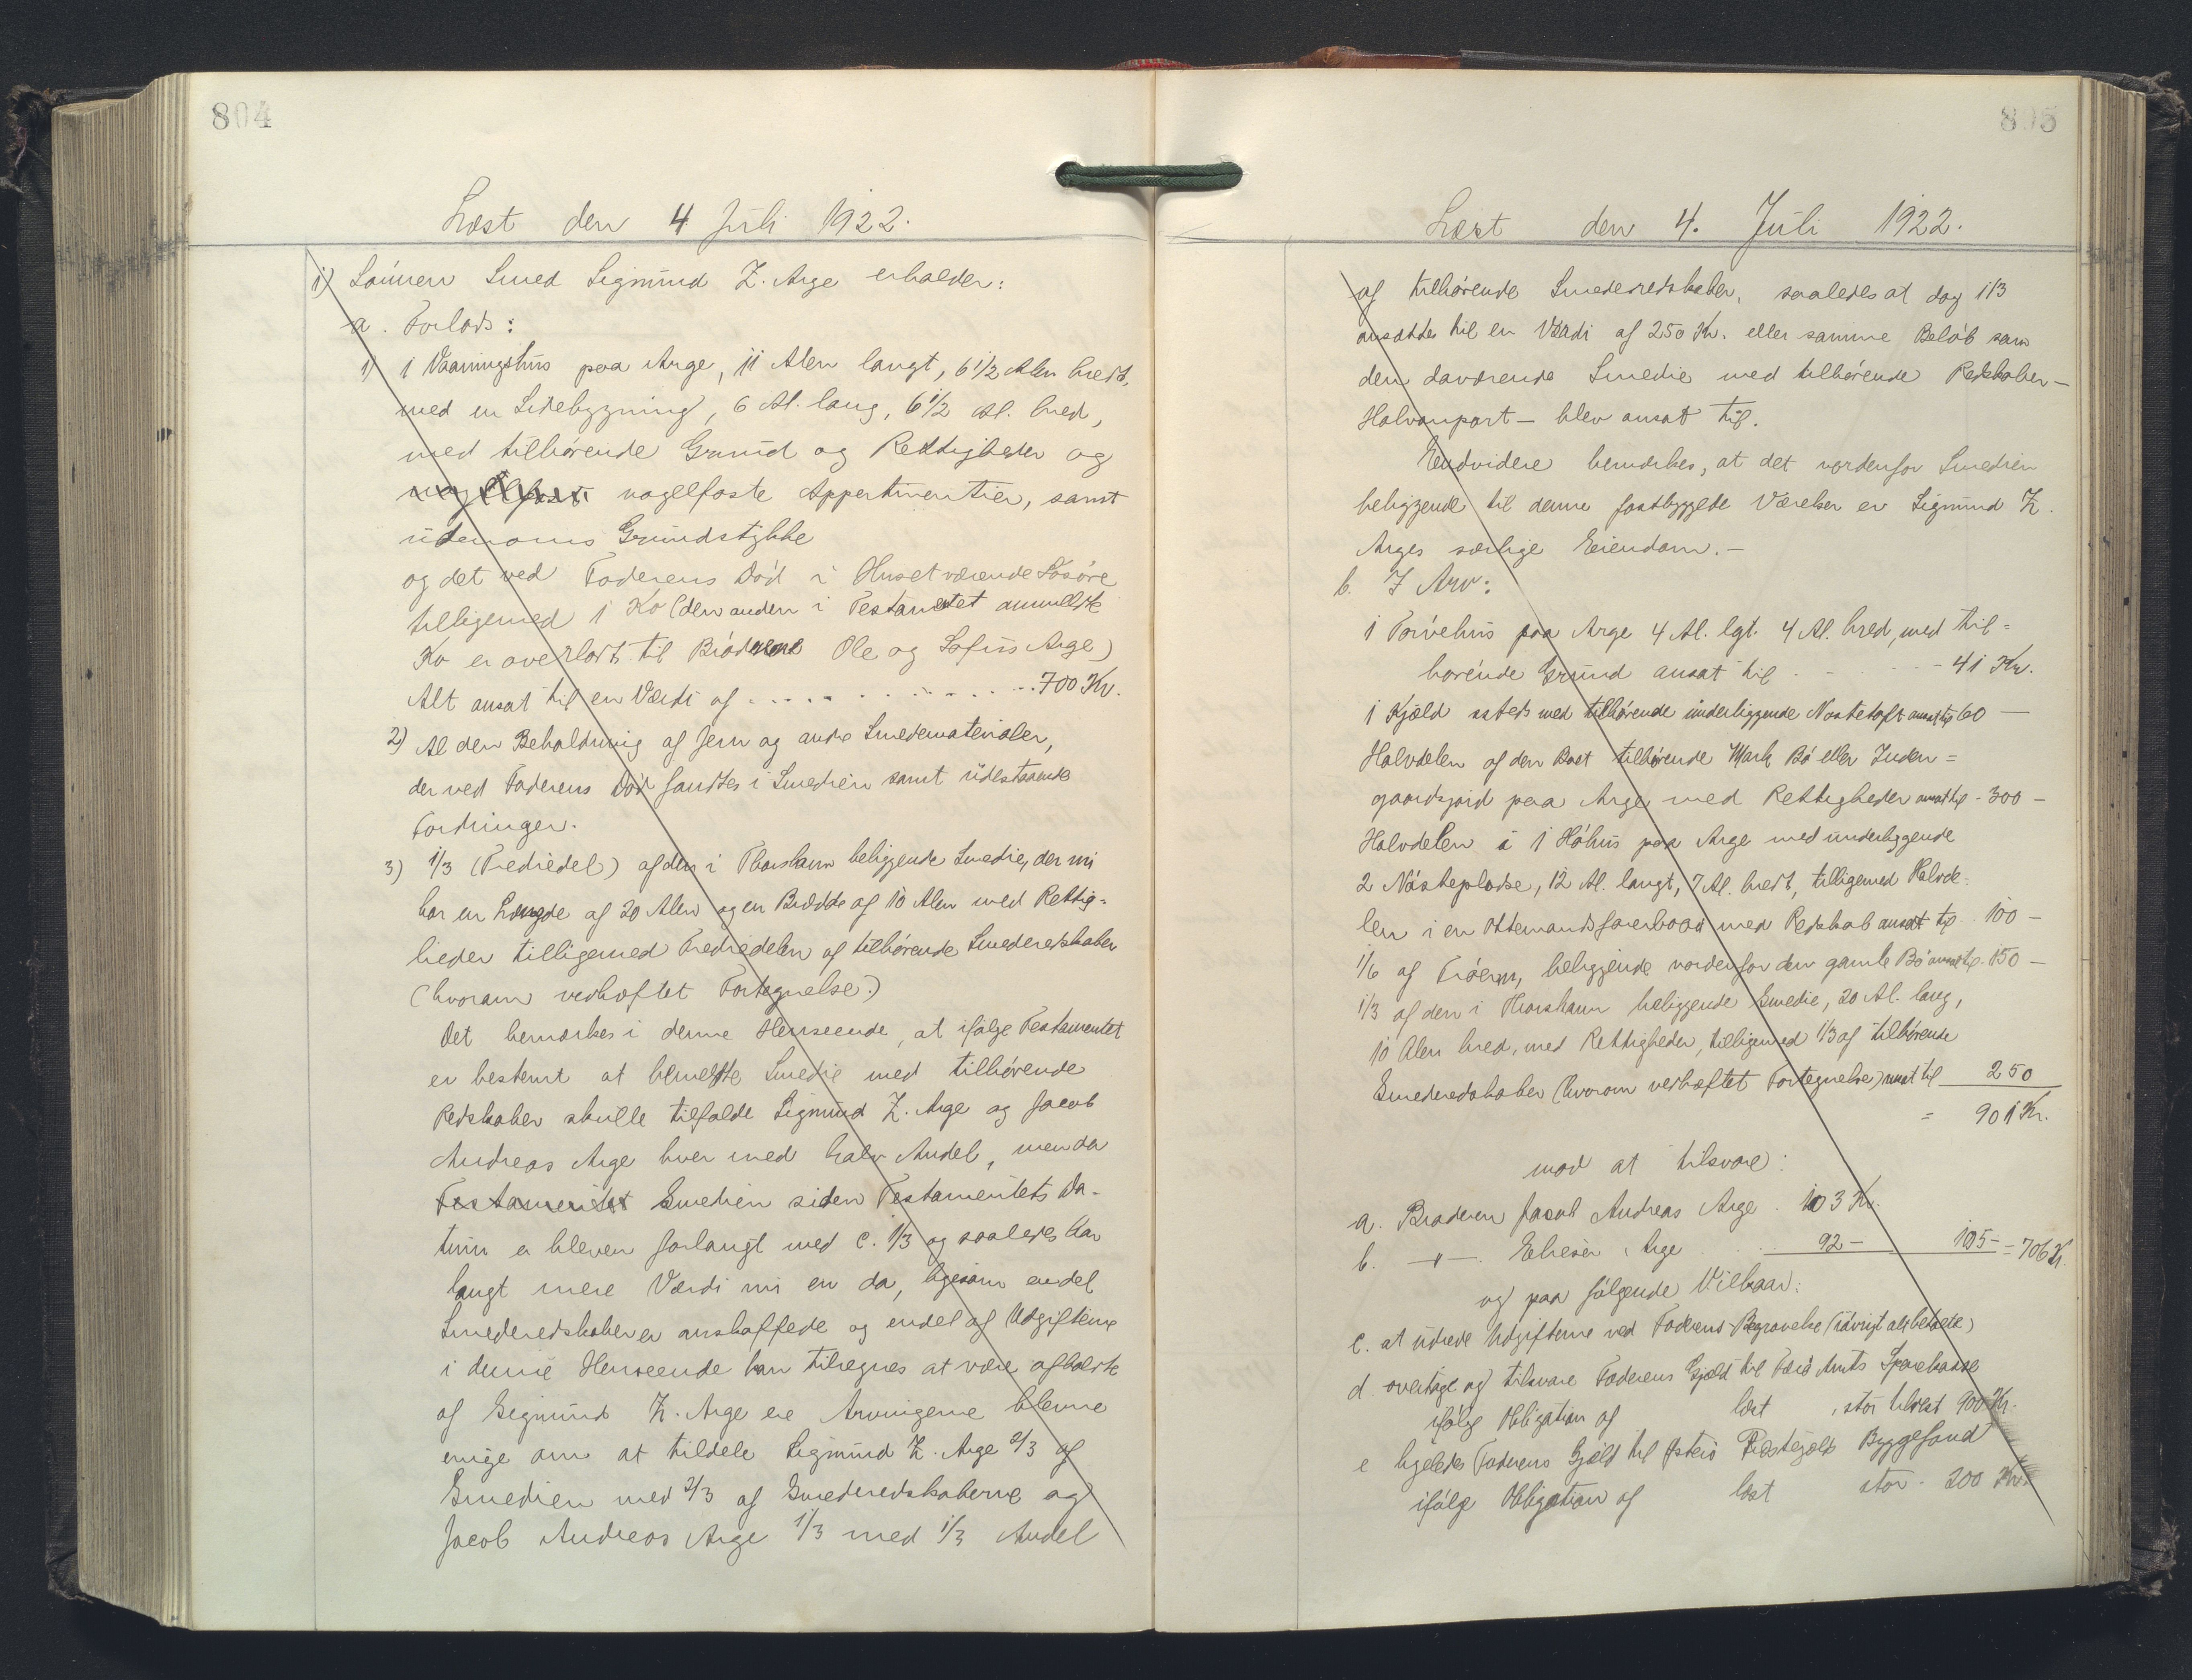 804
Læst den 4 Juli 1922.
1) Sónnen Smed Sigmund Z. Arge erholder:
a. Forlods:
1) 1 Vaaningshus paa Arge, 11 Alen langt, 6 1/2 Alen bredt,
med en Sidebygning, 6 Al. lang, 6 1/2 Al. bred,
med tilhørende Grund og Rettigheder og
nagelfaste Appertinentier, samt
udenoms Grundstykke
og det ved Faderens Død i Huset værende Løsøre
tilligemed 1 Ko (den anden i Testamentet anmeldte
Ko er overladt til Brødrene Ole og Sofus Arge)
Alt ansat til en Værdi af . . . . . . . . . . 700 Kr.
2) Al den Beholdning af Jern og andre Smedematerialer,
der ved Faderens Død fandtes i Smedien samt udestaaende
Fordringer.
3) 1/3 (Trediedel) af den i Thorshavn beliggende Smedie, der nu
har en Længde af 20 Alen og en Bredde af 10 Alen med Rettig-
heder tilligemed Trediedelen af tilhørende Smederedskaber
(hvorom vedhæftet Fortegnelse.)
Det bemærkes i denne Henseende, at ifølge Testamentet
er bestemt at bemeldte Smedie med tilhørende
Redskaber skulle tilfalde Sigmund Z. Arge og Jacob
Andreas Arge hver med halv Andel, men da
Testamentet Smedien siden Testamentets Da-
tum er bleven forlængt med c. 1/3 og saaledes har
langt mere Værdi nu en da, ligesom endel
Smederedskaber er anskaffede og endel af Udgifterne
i denne Henseende kan tilregnes at være afholdte
af Sigmund Z. Arge ere Arvingerne blevne
enige om at tildele Sigmund Z. Arge 2/3 af
Smedien med 2/3 af Smederedskaberne og
Jacob Andreas Arge 1/3 med 1/3 Andel
805
Læst den 4. Juli 1922.
af tilhørende Smederedskaber, saaledes at dog 1/3
ansættes til en Værdi af 250 Kr. eller samme Beløb som
den daværende Smedie med tilhørende Redskaber –
Halvanpart – blev ansat til.
Endvidere bemærkes, at det nordenfor Smedien
beliggende til denne fastbyggede Værelser er Sigmund Z.
Arges særlige Eiendom. –
b. I Arv:
1 Torvehus paa Arge 4 Al. lgt. 4 Al. bred, med til=
hørende Grund ansat til . - - - 41 Kr.
1 Kjæld ssteds med tilhørende underliggende Nøstetoft ansat til 60 –
Halvdelen af den Boet tilhørende Mark Bø eller Inden=
gaardsjord paa Arge med Rettigheder ansat til - 300 –
Halvdelen i 1 Høhus paa Arge med underliggende
2 Nøsteplodse, 12 Al. langt, 7 Al. bredt, tilligemed Halvde-
len i en Ottemandsfarerbaad med Redskab ansat til . 100 –
1/6 af Trøern, beliggende nordenfor den gamle Bø ansat til . 150 –
1/3 af den i Thorshavn beliggende Smedie, 20 Al. lang,
10 Alen bred, med Rettigheder, tilligemed 1/3 af tilhørende
Smederedskaber (hvorom vedhæftet Fortegnelse) ansat til 250
= 901 Kr.
mod at tilsvare:
a. Broderen Jacob Andreas Arge . 103 Kr.
b. –"–. Elieser Arge 92 – 195 – = 706 Kr.
og paa følgende Vilkaar:
c. at udrede Udgifterne ved Faderens Begravelse (iøvrigt alt betalte)
d. overtage og tilsvare Faderens Gjæld til Færø Amts Sparekasse
ifølge Obligation af læst , stor tilrest 900 Kr.
e ligeledes Faderens Gjæld til Østerø Præstegjælds Byggefond
ifølge Obligation af læst stor - 200 Kr.